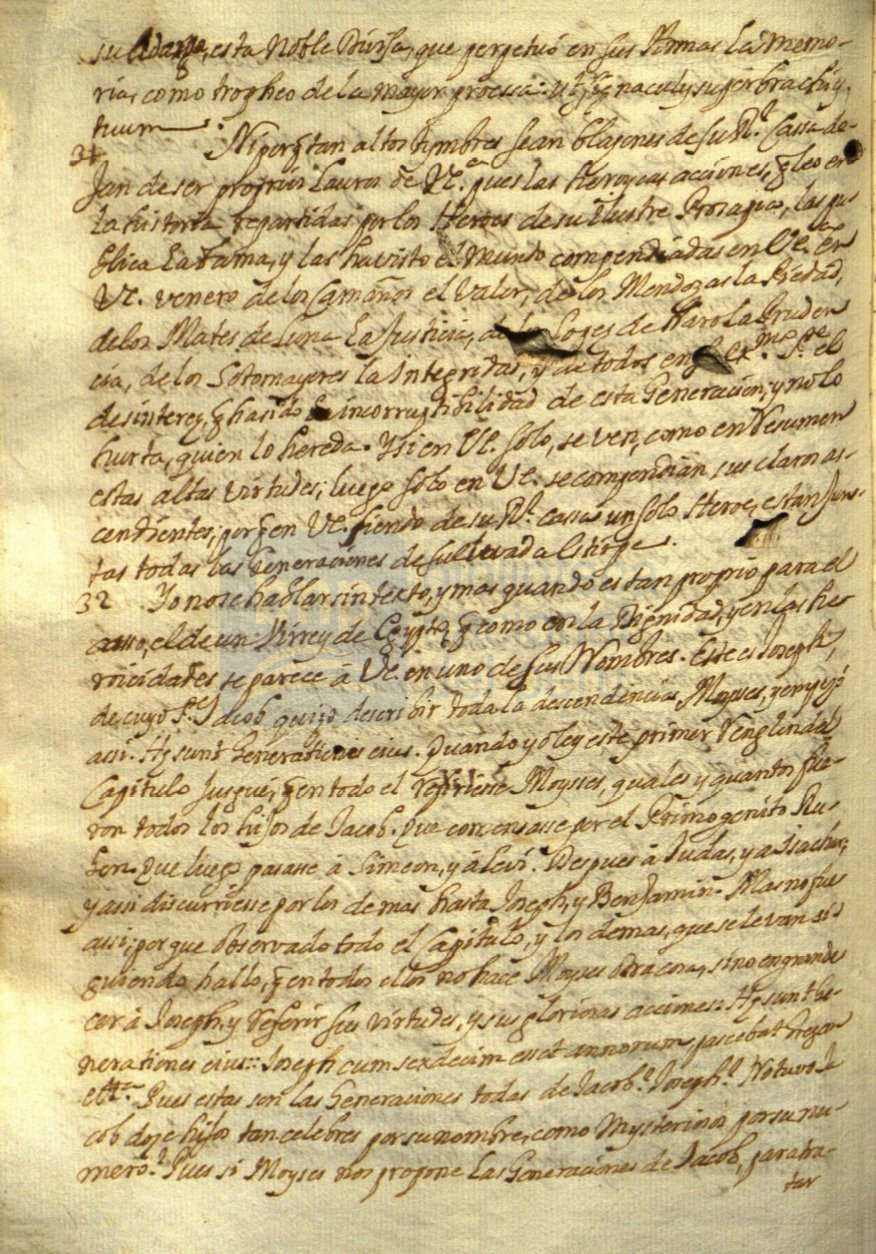 su Adarga, esta Noble Divisa, que perpetuó en sus Armas la memo-
ria, como tropheo de la mayor proessa: ut signaculũ super brachiũ
tuum.
31 Ni porq̃ tan altos tymbres sean blasones de su Rl. Cassa de-
Jan de ser proprios Lauros de VE.ª pues las Heroycas acciones, q̃ leo en
la historia repartidas por los Heroes de su Ilustre Prosapia, las pu-
blica la Fama, y las ha visto el Mundo compendiadas en VE. en
VE. venero de los Camaños el Valor, de los Mendozas la Piedad,
de los Mates de Luna la Justicia, de los Lopes de Haro la Pruden
cia, de los Sotomayores la Integridad, y de todos en el Exmo. Pe. el
desinteres, q̃ ha sido la incorruptibilidad de esta Generacion, y no lo
hurta, quien lo hereda. Y si en VE. solo, se ven, como en Resumen
estas altas virtudes; luego solo en VE. se compendian sus claros as-
cendientes; porq̃ en VE. siendo de su Rl. cassa un solo Heroe, estan Jun-
tas todas las Generaciones de su elevada estirpe.
32 Yo no se hablar sin texto, y mas quando es tan proprio para el
asso, el de un Virrey de Egypto, q̃ como en la Dignidad, y en las he
roicidades se parece à VE. en uno de sus Nombres. Este es Joseph,
de cuyo Pe. Jacob quiso describir toda la descendencia Moyses, y empezó
assi. Hę sunt Generationes eius. Quando yo ley este primer Renglon del
Capitulo Jusgué, q̃ en todo el refiriesse Moysses, quales y quantos fue-
ron todos los hijos de Jacob. Que comensasse por el Primogenito Ru-
ben. Que luego passasse à Simeon, y à Levi. Despues à Judas, y a Isachar,
y assi discurriesse por los demas hasta Joseph, y Benjamin. Mas no fue
assi; porque observado todo el Capitulo, y los demas, que se le van si-
guiendo hallo, q̃ en todos ellos no hace Moyses otra cosa, sino engrande
cer à Joseph, y referir sus virtudes, y sus gloriosas acciones: Hę sunt Ge-
nerationes eius:: Joseph cum sexdecim esset annorum pascebat gregem
ett.ª Pues estas son las Generaciones todas de Jacob? Joseph? No tuvo Ja
cob doze hijos tan celebres por su nombre, como Mysteriosos por su nu-
mero? Pues si Moyses nos propone las Generaciones de Jacob, para tra-
tar